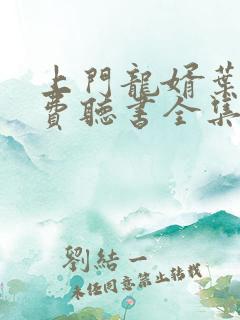 上門龍婿葉
費聽書全集
劉結一
未经同意禁止转载